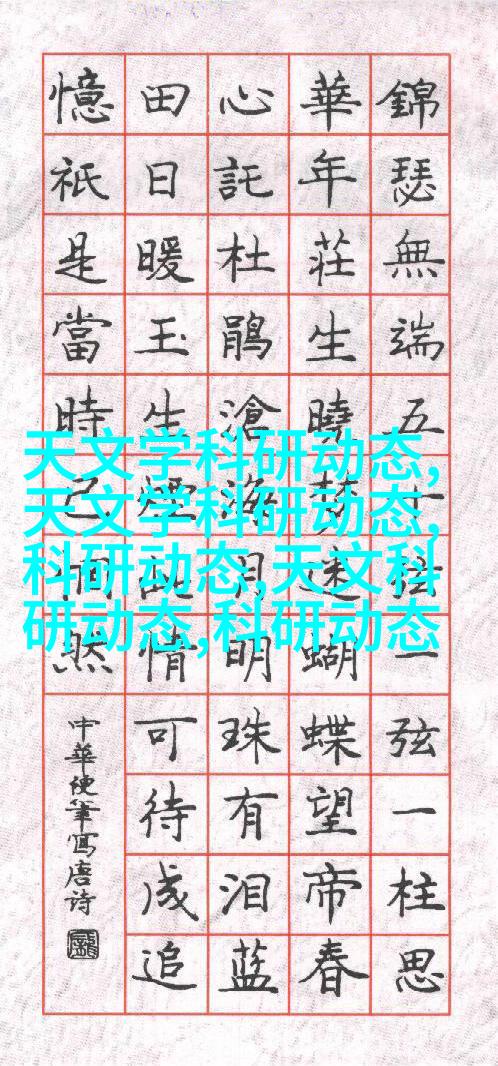 錦瑟無端五十弦一弦一柱思
華年莊生曉夢迷蝴蝶望帝春
心託杜鵑滄海月明珠有泪蓝
田日暖玉生煙此情可待成追
憶祇是當時已惘然
中華硬筆寫唐诗
天文学科研动态,
天文学科研动态,
科研动态,天文科
研动态,科研动态